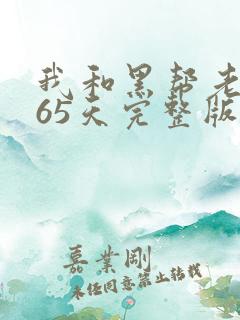 我和黑帮老
65天完整版
嘉业刚
未经同意禁止转载